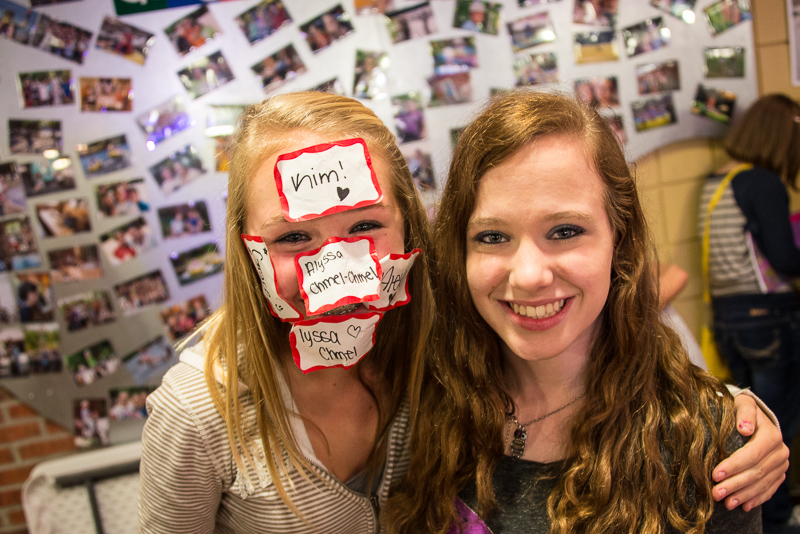 Kim!
Alyssa
Chmel-Chmel
lyssa
Chmel